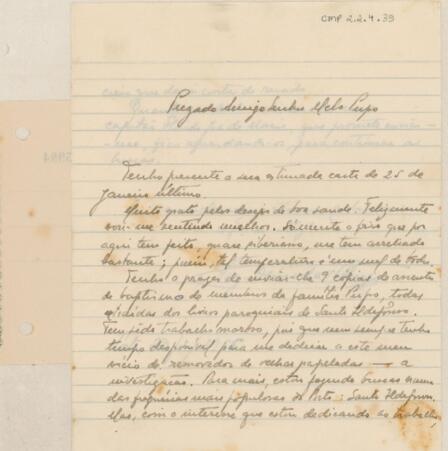 CMP 2.2.4.39
Prezado Amigo Senhor Melo Pupo
Tenho presente a sua estimada carta de 25 de
Janeiro último.
Muito grato pelos desejos de boa saude. Felizmente
vou-me sentindo melhor. Sómente o frio que por
aqui tem feito, quase siberiano, me tem arreliado
bastante; porém, tal temperatura é um mal de todos.
Tenho o prazer de enviar-lhe 9 copias de assentos
de baptismo de membros da familia Pupo, todas
extraidas dos livros paroquiais de Santo Ildefonso.
Tem sido trabalho moroso, pois que nem sempre tenho
tempo disponivel para me dedicar a este meu
vicio de removedor de velhas papeladas — a
investigação. Para mais, estou fazendo buscas numa
das freguesias mais populosas do Porto: Santo Ildefonso.
Mas, com o interesse que estou dedicando ao trabalho,